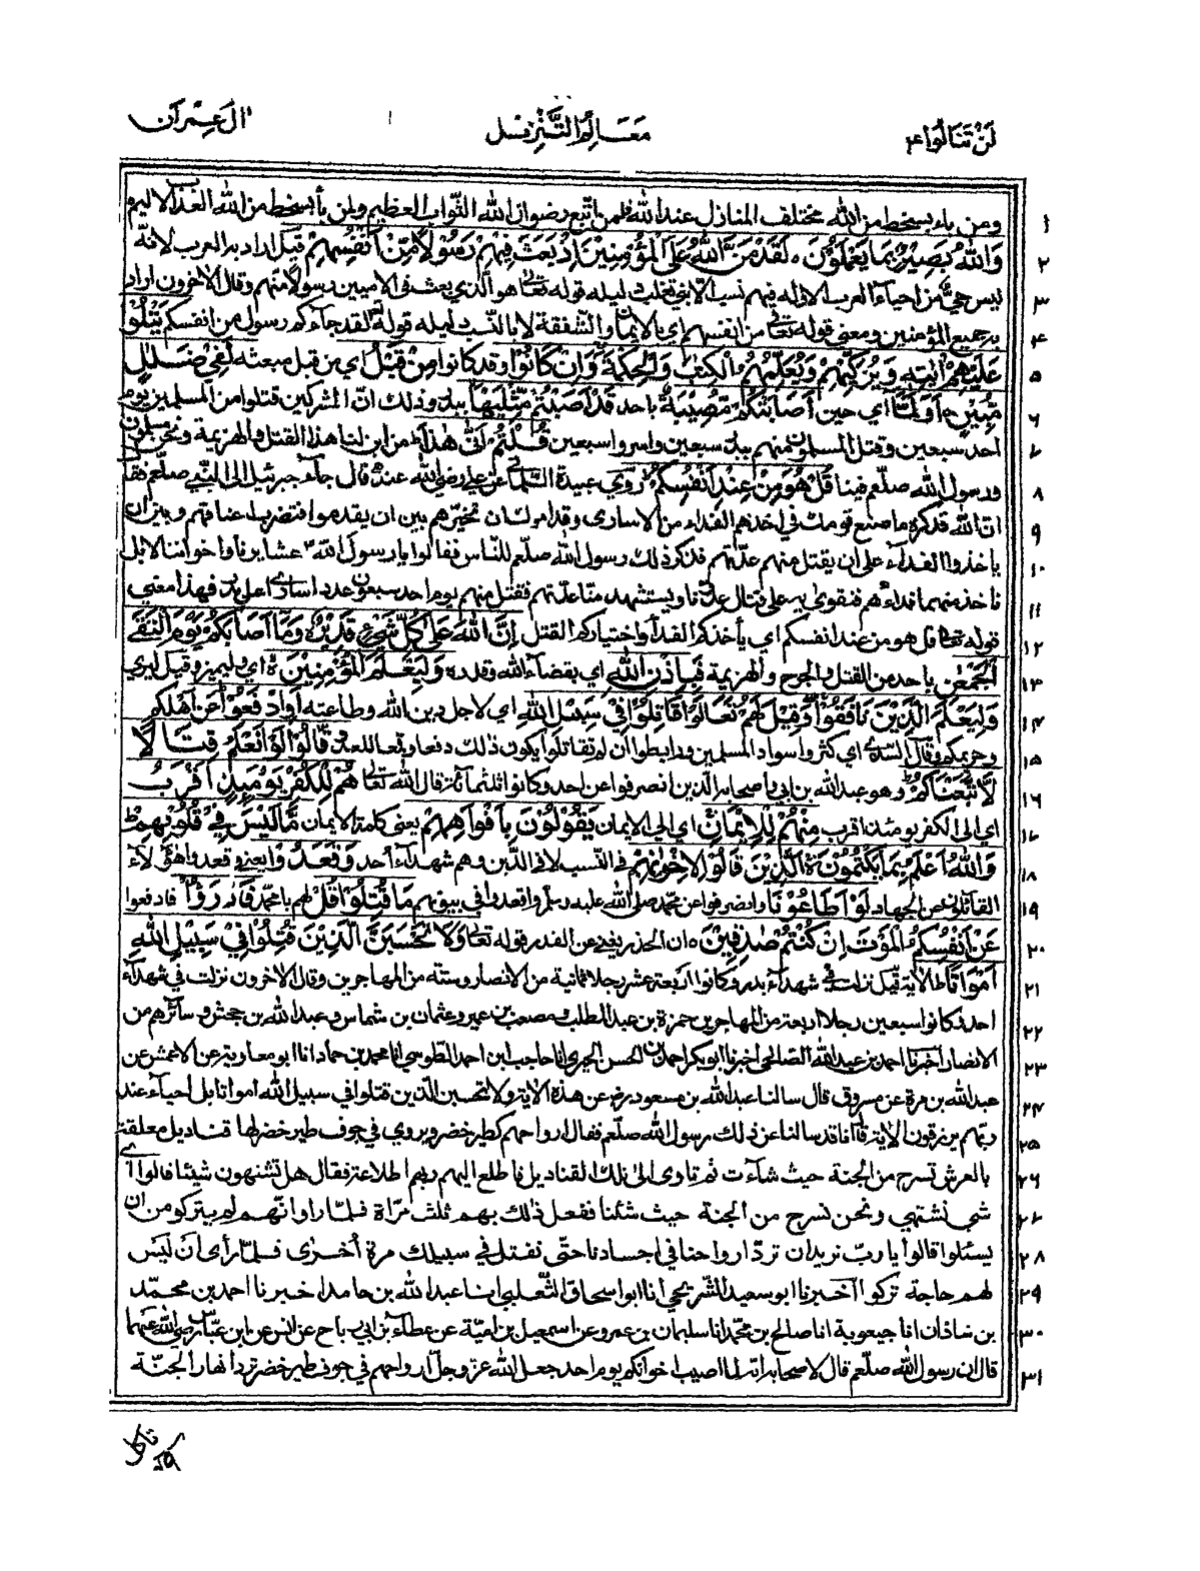 لَنْ تَنَالُوا ٤ مَعَالِمُ التَّنْزِيل اٰل عِمْرَان
١ ومن باء بسخط من الله مختلف المنازل عند الله فلمن اتبع رضوان الله الثواب العظيم ولمن باء بسخط من الله العذاب الاليم
٢ وَاللّٰهُ بَصِيْرٌ بِمَا يَعْمَلُوْنَ ه لَقَدْ مَنَّ اللّٰهُ عَلَى الْمُؤْمِنِيْنَ اِذْ بَعَثَ فِيْهِمْ رَسُوْلًا مِّنْ اَنْفُسِهِمْ قيل اراد به العرب لانه
٣ ليس حي من احياء العرب الا وله فيهم نسب الا بني تغلب دليله قوله تعالى هو الذي بعث في الاميين رسولا منهم وقال الاخرون اراد
٤ به جميع المؤمنين ومعنى قوله تعالى من انفسهم اي بالايمان والشفقة لا بالنسب دليله قوله تعالى لقد جاءكم رسول من انفسكم يَتْلُوْا
٥ عَلَيْهِمْ اٰيٰتِهٖ وَيُزَكِّيْهِمْ وَيُعَلِّمُهُمُ الْكِتٰبَ وَالْحِكْمَةَ وَاِنْ كَانُوْا وقد كانوا مِنْ قَبْلُ اي من قبل مبعثه لَفِيْ ضَلٰلٍ
٦ مُّبِيْنٍ ه اَوَلَمَّا اي حين اَصَابَتْكُمْ مُّصِيْبَةٌ باحد قَدْ اَصَبْتُمْ مِّثْلَيْهَا ببدر وذلك ان المشركين قتلوا من المسلمين يوم
٧ احد سبعين وقتل المسلمون منهم ببدر سبعين واسروا سبعين قُلْتُمْ اَنّٰى هٰذَا من اين لنا هذا القتل والهزيمة ونحن مسلمون
٨ ورسول الله صلعم فينا قُلْ هُوَ مِنْ عِنْدِ اَنْفُسِكُمْ روى عبيدة السلماني عن علي رضي الله عنه قال جاء جبرئيل الى النبي صلعم فقال
٩ ان الله قد كره ما صنع قومك في اخذهم الفداء من الاسارى وقد امرك ان تخيرهم بين ان يقدموا فتضرب اعناقهم وبين ان
١٠ ياخذوا الفداء على ان يقتل منهم عدتهم فذكر ذلك رسول الله صلعم للناس فقالوا يا رسول الله عشايرنا واخواننا لا بل
١١ ناخذ منهم فداءهم فنقوى به على قتال عدونا ويستشهد منا عدتهم فقتل منهم يوم احد سبعون عدد اسارى اهل بدر فهذا معنى
١٢ قوله تعالى قل هو من عند انفسكم اي باخذكم الفداء واختياركم القتل اِنَّ اللّٰهَ عَلٰى كُلِّ شَيْءٍ قَدِيْرٌ ه وَمَا اَصَابَكُمْ يَوْمَ الْتَقَى
١٣ الْجَمْعٰنِ باحد من القتل والجرح والهزيمة فَبِاِذْنِ اللّٰهِ اي بقضاء الله وقدره وَلِيَعْلَمَ الْمُؤْمِنِيْنَ ه اي ليميز وقيل ليرى
١٤ وَلِيَعْلَمَ الَّذِيْنَ نَافَقُوْا وَقِيْلَ لَهُمْ تَعَالَوْا قَاتِلُوْا فِيْ سَبِيْلِ اللّٰهِ اي لاجل دين الله وطاعته اَوِ ادْفَعُوْا عن اهلكم
١٥ وحريمكم وقال السدي اي كثروا سواد المسلمين ورابطوا ان لم تقاتلوا يكون ذلك دفعا وقمعا للعدو قَالُوْا لَوْ نَعْلَمُ قِتَالًا
١٦ لَّاتَّبَعْنٰكُمْ وهو عبد الله بن ابي واصحابه الذين انصرفوا عن احد وكانوا ثلثمائة قال الله تعالى هُمْ لِلْكُفْرِ يَوْمَئِذٍ اَقْرَبُ
١٧ اي الى الكفر يومئذ اقرب مِنْهُمْ لِلْاِيْمَانِ اي الى الايمان يَقُوْلُوْنَ بِاَفْوَاهِهِمْ يعني كلمة الايمان مَّا لَيْسَ فِيْ قُلُوْبِهِمْ ط
١٨ وَاللّٰهُ اَعْلَمُ بِمَا يَكْتُمُوْنَ ه الَّذِيْنَ قَالُوْا لِاِخْوَانِهِمْ في النسب لا في الدين وهم شهداء احد وَقَعَدُوْا يعني وقعد هؤلاء
١٩ القائلون عن الجهاد لَوْ اَطَاعُوْنَا وانصرفوا عن محمد صلى الله عليه وسلم وقعدوا في بيوتهم مَا قُتِلُوْا قُلْ لهم يا محمد فَادْرَءُوْا فادفعوا
٢٠ عَنْ اَنْفُسِكُمُ الْمَوْتَ اِنْ كُنْتُمْ صٰدِقِيْنَ ه ان الحذر يغني عن القدر قوله تعالى وَلَا تَحْسَبَنَّ الَّذِيْنَ قُتِلُوْا فِيْ سَبِيْلِ اللّٰهِ
٢١ اَمْوَاتًا ط الآية قيل نزلت في شهداء بدر وكانوا اربعة عشر رجلا ثمانية من الانصار وستة من المهاجرين وقال الاخرون نزلت في شهداء
٢٢ احد وكانوا سبعين رجلا اربعة من المهاجرين حمزة بن عبد المطلب ومصعب بن عمير وعثمان بن شماس وعبد الله بن جحش وسائرهم من
٢٣ الانصار اخبرنا احمد بن عبد الله الصالحي اخبرنا ابو بكر احمد بن الحسن الحيري انا حاجب بن احمد الطوسي انا محمد بن حماد انا ابو معاوية عن الاعمش عن
٢٤ عبد الله بن مرة عن مسروق قال سالنا عبد الله بن مسعود رض عن هذه الاية ولا تحسبن الذين قتلوا في سبيل الله امواتا بل احياء عند
٢٥ ربهم يرزقون الاية قال انا قد سالنا عن ذلك رسول الله صلعم فقال ارواحهم كطير خضر ويروى في جوف طير خضر لها قناديل معلقة
٢٦ بالعرش تسرح من الجنة حيث شاءت ثم تاوى الى تلك القناديل فاطلع اليهم ربهم اطلاعة فقال هل تشتهون شيئا قالوا اي
٢٧ شي نشتهي ونحن نسرح من الجنة حيث شئنا ففعل ذلك بهم ثلث مراة فلما راوا انهم لم يتركو من ان
٢٨ يسئلوا قالوا يا رب نريد ان ترد ارواحنا في اجسادنا حتى نقتل في سبيلك مرة اخرى فلما رأى ان ليس
٢٩ لهم حاجة تركوا اخبرنا ابو سعيد الشريحي انا ابو اسحاق الثعلبي انا عبد الله بن حامد اخبرنا احمد بن محمد
٣٠ بن شاذان انا جيعوية انا صالح بن محمد انا سليمان بن عمرو عن اسمعيل بن امية عن عطاء بن ابي رباح عن انس عن ابن عباس رضي الله عنهما
٣١ قال ان رسول الله صلعم قال لاصحابه انه لما اصيب اخوانكم يوم احد جعل الله عز وجل ارواحهم في جوف طير خضر ترد انهار الجنة